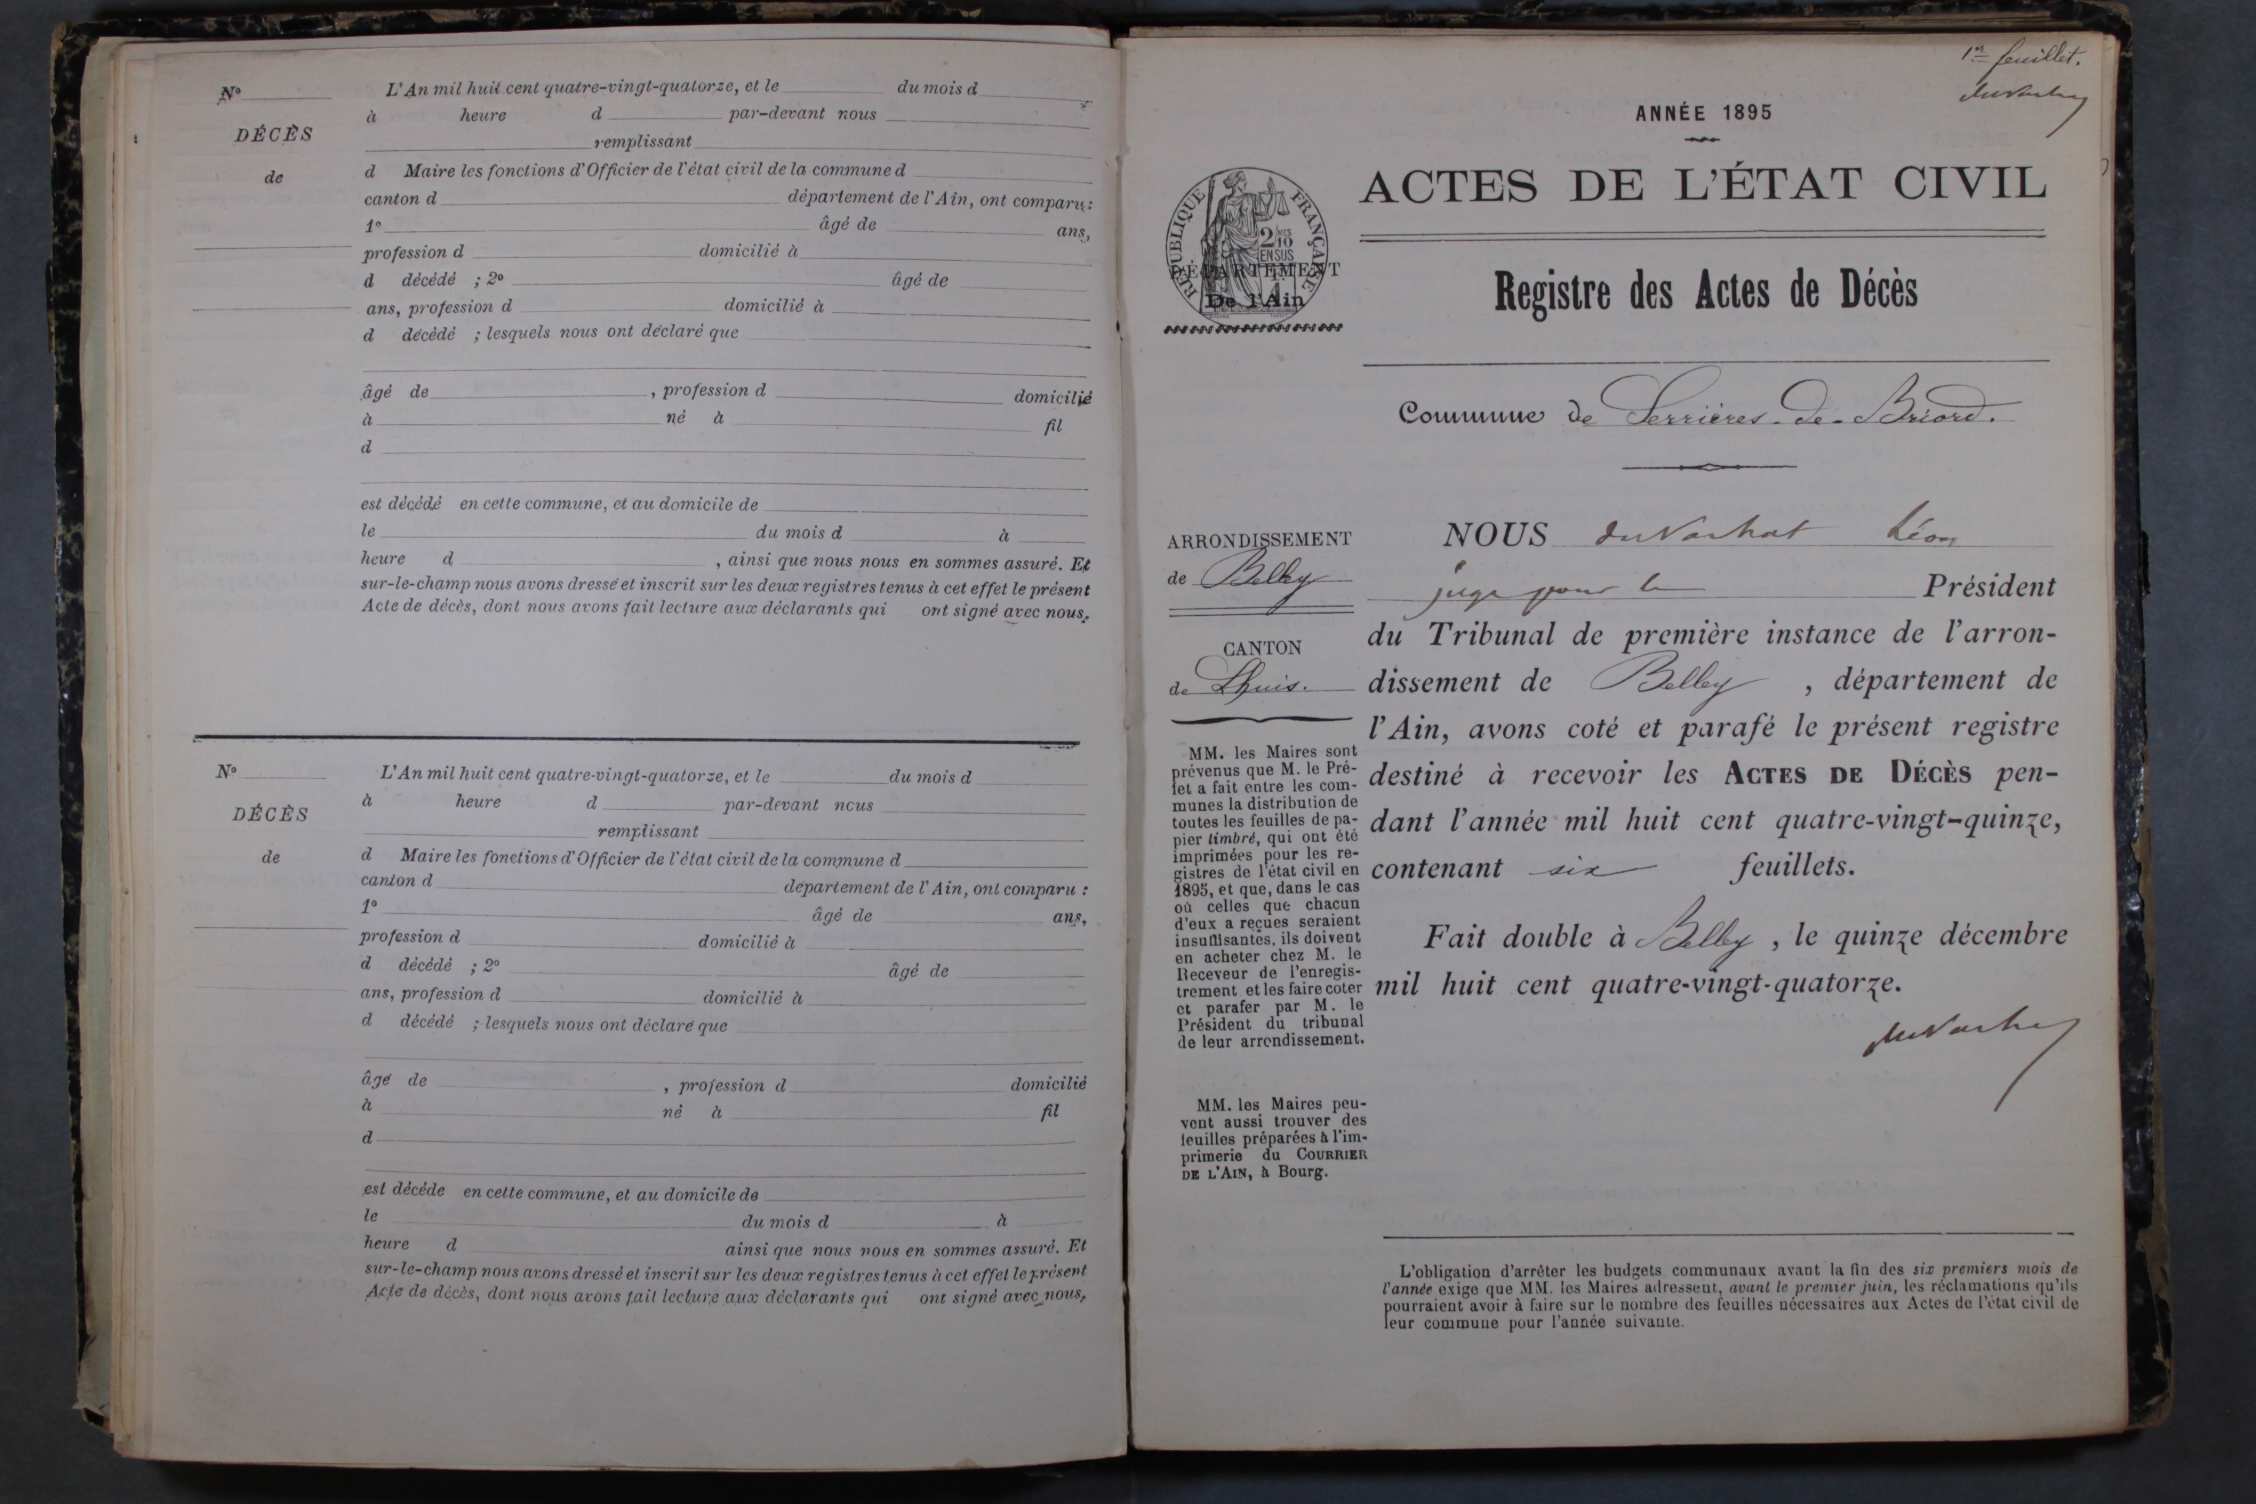 N°
L'An mil huit cent quatre-vingt-quatorze, et le du mois d
à heure d par-devant nous
DÉCÈS
remplissant
de
d Maire les fonctions d'Officier de l'état civil de la commune d
canton d département de l'Ain, ont comparu:
1° âgé de ans,
profession d domicilié à
d décédé ; 2° âgé de
ans, profession d domicilié à
d décédé ; lesquels nous ont déclaré que
âgé de , profession d domicilié
à né à fil
d
est décédé en cette commune, et au domicile de
le du mois d à
heure d , ainsi que nous nous en sommes assuré. Et
sur-le-champ nous avons dressé et inscrit sur les deux registres tenus à cet effet le présent
Acte de décès, dont nous avons fait lecture aux déclarants qui ont signé avec nous.
N°
L'An mil huit cent quatre-vingt-quatorze, et le du mois d
à heure d par-devant nous
DÉCÈS
remplissant
de
d Maire les fonctions d'Officier de l'état civil de la commune d
canton d département de l'Ain, ont comparu :
1° âgé de ans,
profession d domicilié à
d décédé ; 2° âgé de
ans, profession d domicilié à
d décédé ; lesquels nous ont déclaré que
âgé de , profession d domicilié
à né à fil
d
est décédé en cette commune, et au domicile de
le du mois d à
heure d ainsi que nous nous en sommes assuré. Et
sur-le-champ nous avons dressé et inscrit sur les deux registres tenus à cet effet le présent
Acte de décès, dont nous avons fait lecture aux déclarants qui ont signé avec nous,
1er feuillet.
ANNÉE 1895
ACTES DE L'ÉTAT CIVIL
RÉPUBLIQUE FRANÇAISE
2/10
EN SUS
DÉPARTEMENT
De l'Ain
Registre des Actes de Décès
Commune de Serrières-de-Briord.
ARRONDISSEMENT
de Belley
CANTON
de Lhuis.
MM. les Maires sont
prévenus que M. le Pré-
fet a fait entre les com-
munes la distribution de
toutes les feuilles de pa-
pier timbré, qui ont été
imprimées pour les re-
gistres de l'état civil en
1895, et que, dans le cas
où celles que chacun
d'eux a reçues seraient
insuffisantes, ils doivent
en acheter chez M. le
Receveur de l'enregis-
trement et les faire coter
et parafer par M. le
Président du tribunal
de leur arrondissement.
MM. les Maires peu-
vent aussi trouver des
feuilles préparées à l'im-
primerie du COURRIER
DE L'AIN, à Bourg.
NOUS duVachat Léon
juge pour le Président
du Tribunal de première instance de l'arron-
dissement de Belley , département de
l'Ain, avons coté et parafé le présent registre
destiné à recevoir les ACTES DE DÉCÈS pen-
dant l'année mil huit cent quatre-vingt-quinze,
contenant six feuillets.
Fait double à Belley , le quinze décembre
mil huit cent quatre-vingt-quatorze.
L'obligation d'arrêter les budgets communaux avant la fin des six premiers mois de
l'année exige que MM. les Maires adressent, avant le premier juin, les réclamations qu'ils
pourraient avoir à faire sur le nombre des feuilles nécessaires aux Actes de l'état civil de
leur commune pour l'année suivante.